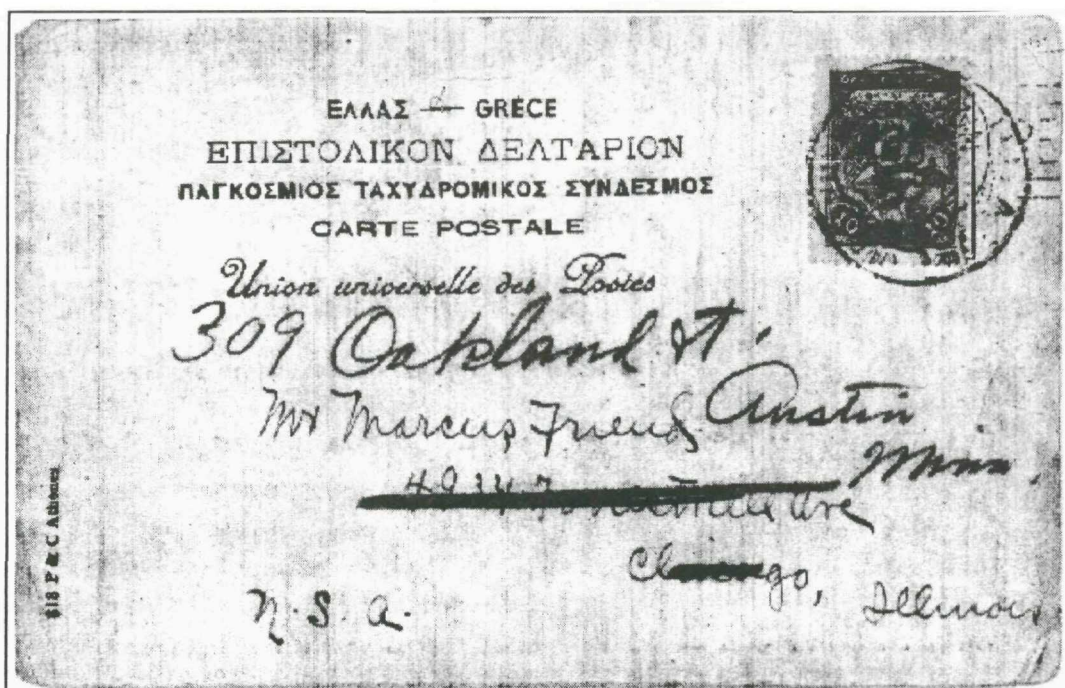 ΕΛΛΑΣ — GRÈCE
ΕΠΙΣΤΟΛΙΚΟΝ ΔΕΛΤΑΡΙΟΝ
ΠΑΓΚΟΣΜΙΟΣ ΤΑΧΥΔΡΟΜΙΚΟΣ ΣΥΝΔΕΣΜΟΣ
CARTE POSTALE
Union universelle des Postes
309 Oakland St.
Mr Marcus Friend Austin
Minn.
Ave
Chicago, Illinois
U.S.A.
518 P & C Athènes